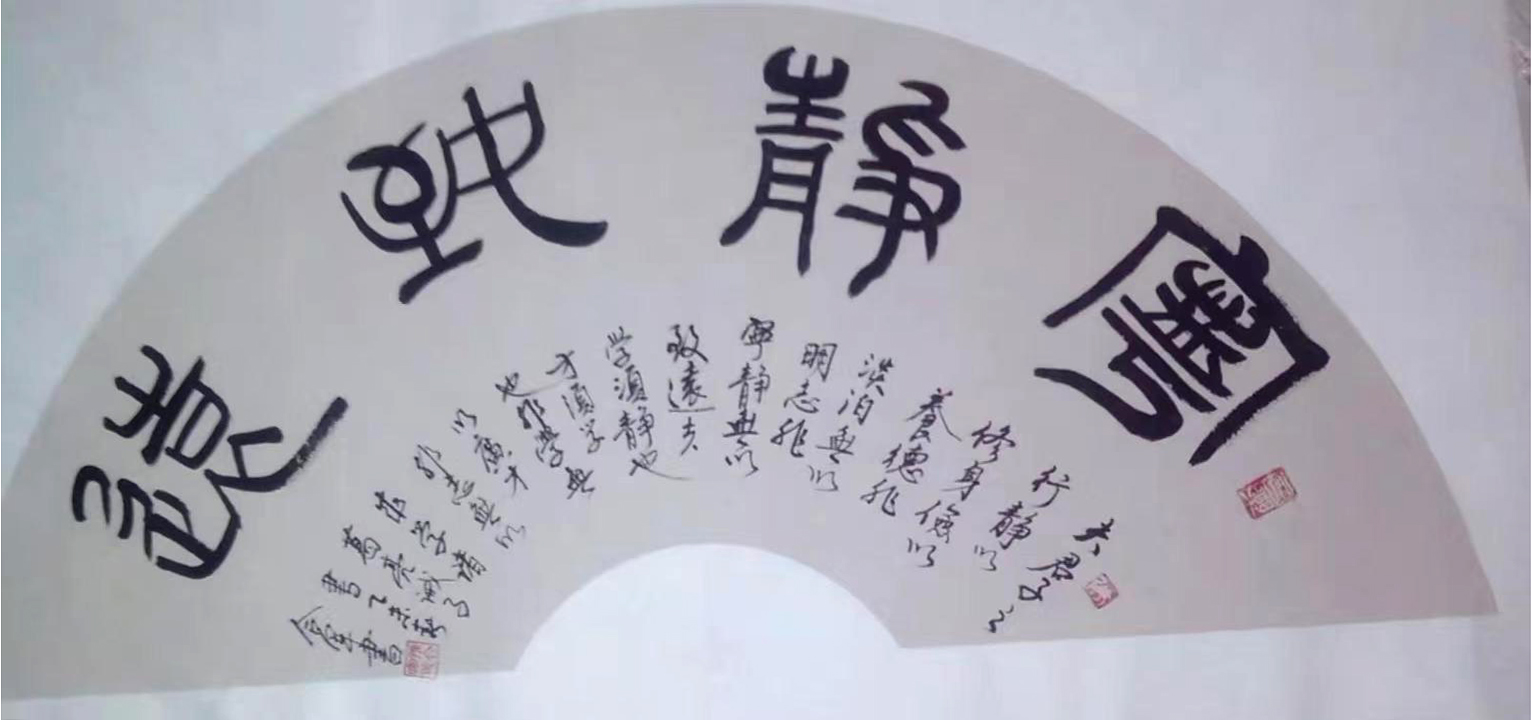 寧靜致遠
夫君子之
行静以
修身儉以
養德非
淡泊無以
明志非
寧静無以
致遠夫
学須静也
才須学
也非学無
以廣才
非志無以
成学諸
葛亮誡子
書乙未
書